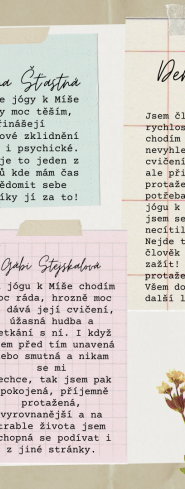 na Šťastná
e jógy k Míše
y moc těším,
řinášejí
ové zklidnění
i psychické.
je to jeden z
ů kde mám čas
ědomit sebe
íky jí za to!
Gábi Stejskalová
jógu k Míše chodím
oc ráda, hrozně moc
dává její cvičení,
úžasná hudba a
etkání s ní. I když
em před tím unavená
ebo smutná a nikam
se mi
echce, tak jsem pak
pokojená, příjemně
protažená,
vyrovnanější a na
trable života jsem
chopná se podívat i
z jiné stránky.
Den
Jsem čl
rychlos
chodím
nevyhle
cvičení
ale při
protaže
potřeba
jógu k
jsem se
necítil
Nejde t
člověk
zažít!
protaže
Všem do
další l